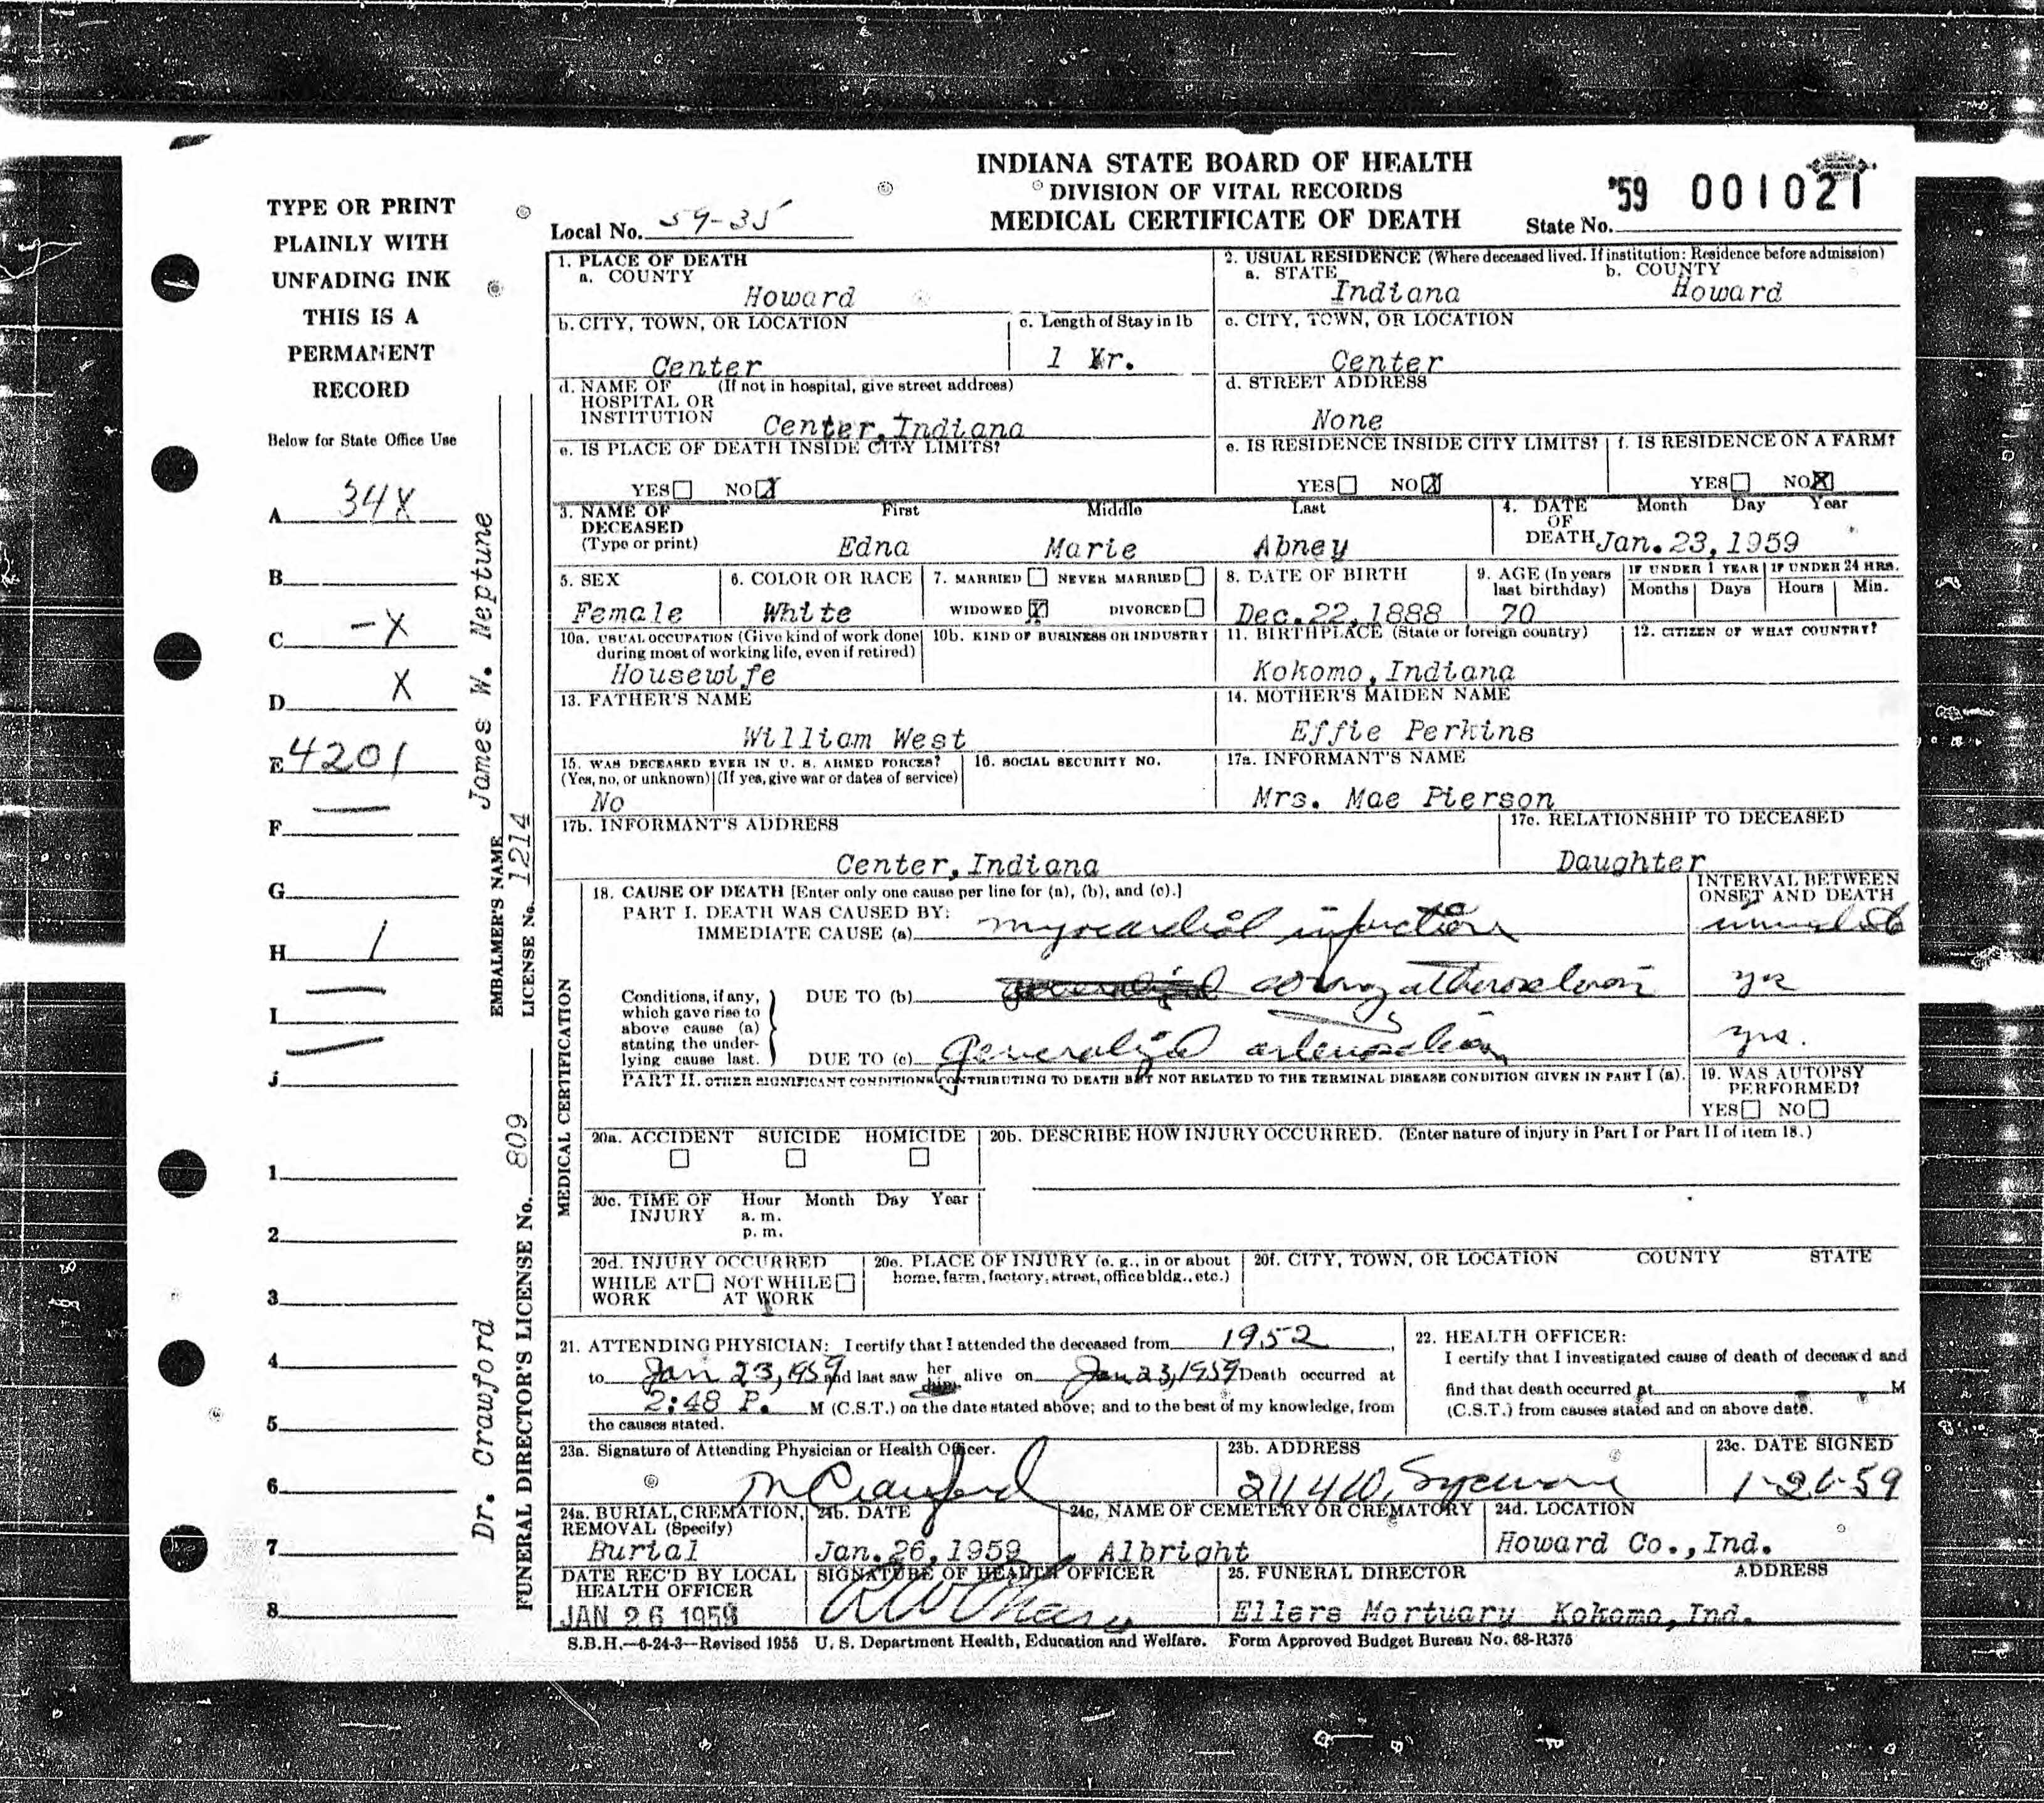 INDIANA STATE BOARD OF HEALTH
DIVISION OF VITAL RECORDS
MEDICAL CERTIFICATE OF DEATH
Local No. 59-35
State No. '59 001021
TYPE OR PRINT
PLAINLY WITH
UNFADING INK
THIS IS A
PERMANENT
RECORD
Below for State Office Use
A 34X
B
C -X
D X
E 4201
F
G
H 1
I
J
1
2
3
4
5
6
7
8
EMBALMER'S NAME James W. Neptune
LICENSE No. 1214
FUNERAL DIRECTOR'S LICENSE No. 809
Dr. Crawford
1. PLACE OF DEATH
a. COUNTY
Howard
2. USUAL RESIDENCE (Where deceased lived. If institution: Residence before admission)
a. STATE b. COUNTY
Indiana Howard
b. CITY, TOWN, OR LOCATION
Center
c. Length of Stay in 1b
1 Yr.
c. CITY, TOWN, OR LOCATION
Center
d. NAME OF (If not in hospital, give street address)
HOSPITAL OR
INSTITUTION Center, Indiana
d. STREET ADDRESS
None
e. IS PLACE OF DEATH INSIDE CITY LIMITS?
YES NO X
e. IS RESIDENCE INSIDE CITY LIMITS?
YES NO X
f. IS RESIDENCE ON A FARM?
YES NO X
3. NAME OF First Middle Last
DECEASED
(Type or print) Edna Marie Abney
4. DATE Month Day Year
OF
DEATH Jan. 23, 1959
5. SEX
Female
6. COLOR OR RACE
White
7. MARRIED NEVER MARRIED
WIDOWED X DIVORCED
8. DATE OF BIRTH
Dec. 22, 1888
9. AGE (In years
last birthday)
70
IF UNDER 1 YEAR
Months Days
IF UNDER 24 HRS.
Hours Min.
10a. USUAL OCCUPATION (Give kind of work done
during most of working life, even if retired)
Housewife
10b. KIND OF BUSINESS OR INDUSTRY
11. BIRTHPLACE (State or foreign country)
Kokomo, Indiana
12. CITIZEN OF WHAT COUNTRY?
13. FATHER'S NAME
William West
14. MOTHER'S MAIDEN NAME
Effie Perkins
15. WAS DECEASED EVER IN U. S. ARMED FORCES?
(Yes, no, or unknown) (If yes, give war or dates of service)
No
16. SOCIAL SECURITY NO.
17a. INFORMANT'S NAME
Mrs. Mae Pierson
17b. INFORMANT'S ADDRESS
Center, Indiana
17c. RELATIONSHIP TO DECEASED
Daughter
MEDICAL CERTIFICATION
18. CAUSE OF DEATH [Enter only one cause per line for (a), (b), and (c).]
INTERVAL BETWEEN
ONSET AND DEATH
PART I. DEATH WAS CAUSED BY:
IMMEDIATE CAUSE (a) myocardial infarction immediate
Conditions, if any,
which gave rise to
above cause (a)
stating the under-
lying cause last.
DUE TO (b) coronary atherosclerosis yrs
DUE TO (c) generalized arteriosclerosis yrs.
PART II. OTHER SIGNIFICANT CONDITIONS CONTRIBUTING TO DEATH BUT NOT RELATED TO THE TERMINAL DISEASE CONDITION GIVEN IN PART I (a).
19. WAS AUTOPSY
PERFORMED?
YES NO
20a. ACCIDENT SUICIDE HOMICIDE
20b. DESCRIBE HOW INJURY OCCURRED. (Enter nature of injury in Part I or Part II of item 18.)
20c. TIME OF Hour Month Day Year
INJURY a. m.
p. m.
20d. INJURY OCCURRED
WHILE AT NOT WHILE
WORK AT WORK
20e. PLACE OF INJURY (e. g., in or about
home, farm, factory, street, office bldg., etc.)
20f. CITY, TOWN, OR LOCATION COUNTY STATE
21. ATTENDING PHYSICIAN: I certify that I attended the deceased from 1952,
to Jan 23, 1959 and last saw her him alive on Jan 23, 1959 Death occurred at
2:48 P. M (C.S.T.) on the date stated above; and to the best of my knowledge, from
the causes stated.
22. HEALTH OFFICER:
I certify that I investigated cause of death of deceased and
find that death occurred at M
(C.S.T.) from causes stated and on above date.
23a. Signature of Attending Physician or Health Officer.
Crawford
23b. ADDRESS
Sycamore
23c. DATE SIGNED
1-26-59
24a. BURIAL, CREMATION,
REMOVAL (Specify)
Burial
24b. DATE
Jan. 26, 1959
24c. NAME OF CEMETERY OR CREMATORY
Albright
24d. LOCATION
Howard Co., Ind.
DATE REC'D BY LOCAL
HEALTH OFFICER
JAN 26 1959
SIGNATURE OF HEALTH OFFICER
25. FUNERAL DIRECTOR ADDRESS
Ellers Mortuary Kokomo, Ind.
S.B.H.—6-24-3—Revised 1955 U. S. Department Health, Education and Welfare. Form Approved Budget Bureau No. 68-R375